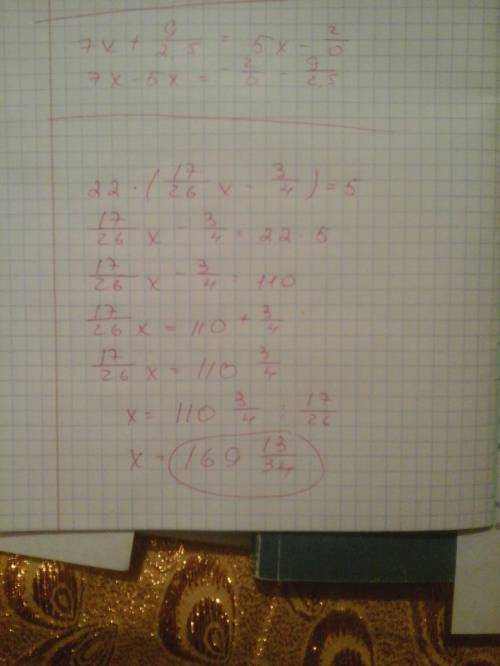 7x + 9/2,5 = 5x - 2/0
7x - 5x = - 2/0 - 9/2,5
22 · (17/26 x - 3/4) = 5
17/26 x - 3/4 = 22 · 5
17/26 x - 3/4 = 110
17/26 x = 110 + 3/4
17/26 x = 110 3/4
x = 110 3/4 : 17/26
x = 169 13/34